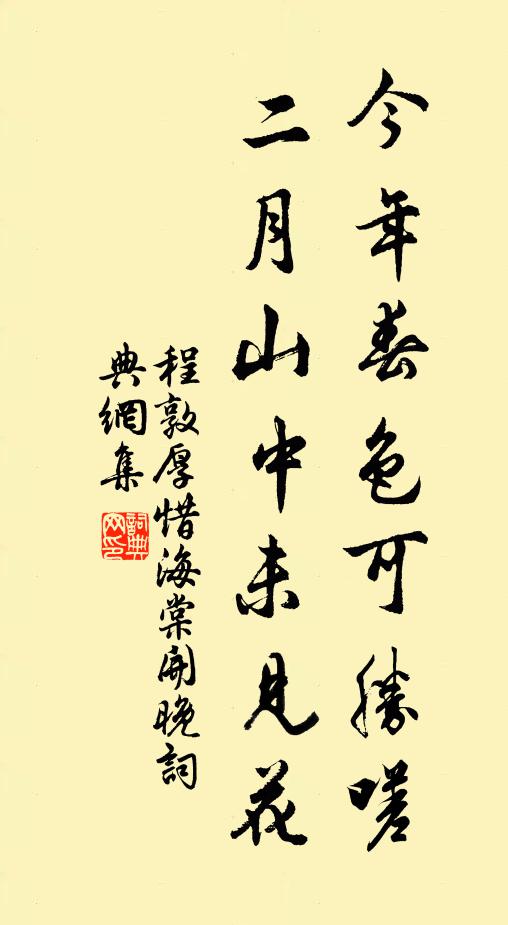 今年春色可勝嗟
二月山中未見花
程敦厚惜海棠開晚詞
典網集
詞典